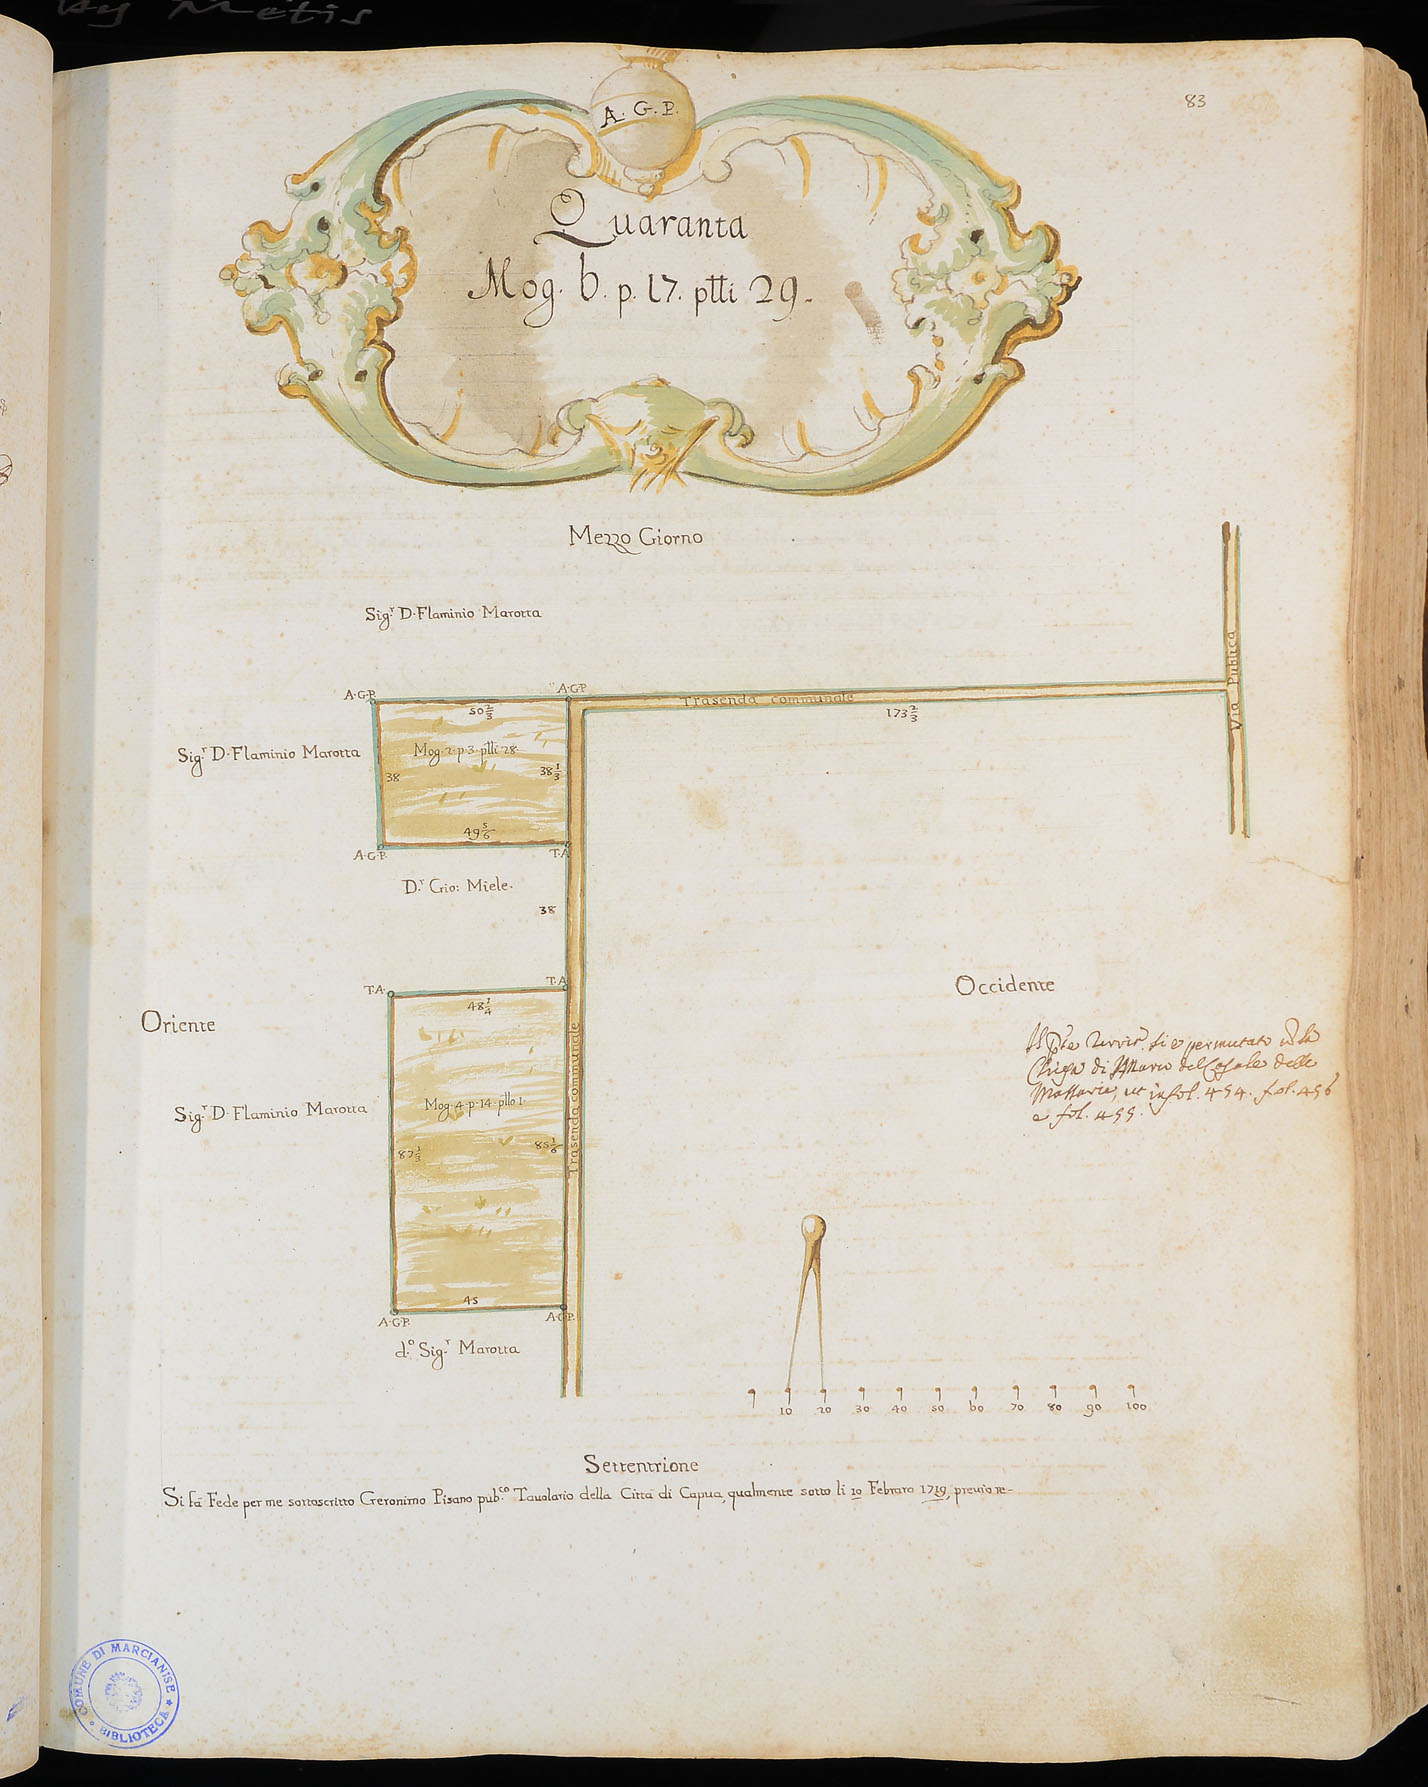 by Metis
83
A. G. P.
Quaranta
Mog. 6. p. 17. ptti 29.
Mezzo Giorno
Sig.r D. Flaminio Marotta
A.G.P.
A.G.P
Trasenda communale
173 2/3
Via Publica
50 2/3
Sig.r D. Flaminio Marotta
Mog. 2. p. 3. ptti 28.
38
38 1/3
49 5/6
A.G.P.
T.A
D.r Gio: Miele.
38
T.A.
T.A
48 1/4
Oriente
Occidente
Sig.r D. Flaminio Marotta
Mog. 4. p. 14. ptto 1.
87 1/3
85 1/6
Trasenda communale
si è permutato
di Casale delle
ut in fol. 454. fol. 456
e fol.
45
A.G.P.
A.G.P.
d.o Sig.r Marotta
10 20 30 40 50 60 70 80 90 100
Settentrione
Si fà Fede per me sottoscritto Geronimo Pisano pub.co Tavolario della Città di Capua, qualmente sotto li 10 Febraro 1719, previo re-
COMUNE DI MARCIANISE
BIBLIOTECA